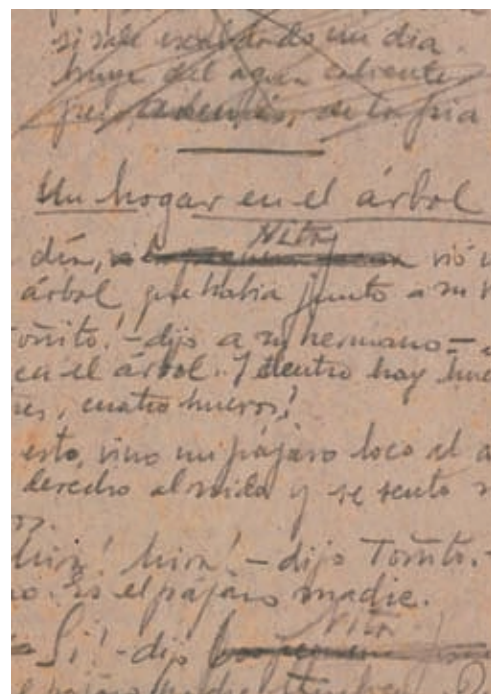 si sale escaldado un dia
huye del agua caliente
pero además, de la fria
Un hogar en el árbol
Nita
día, vió
árbol que había junto a su
Toñito! - dijo a su hermano -
en el árbol. Y dentro hay hue
tres, cuatro huevos!
esto, vino un pájaro loco al a
derecho al nido y se sentó
Mira! Mira! - dijo Toñito. -
Es el pájaro madre.
Nita
Si! - dijo